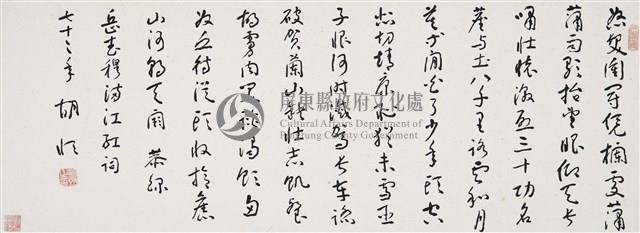 怒髮衝冠凭欄處瀟
瀟雨歇抬望眼仰天長
嘯壯懷激烈三十功名
塵與土八千里路雲和月
莫等閒白了少年頭空
悲切靖康恥猶未雪臣
子恨何時滅駕長車踏
破賀蘭山缺壯志飢餐
胡虜肉笑談渴飲匈
奴血待從頭收拾舊
山河朝天闕 恭錄
岳武穆滿江紅詞
七十三年 胡
屏東縣政府文化處
Cultural Affairs Department of
Pingtung County